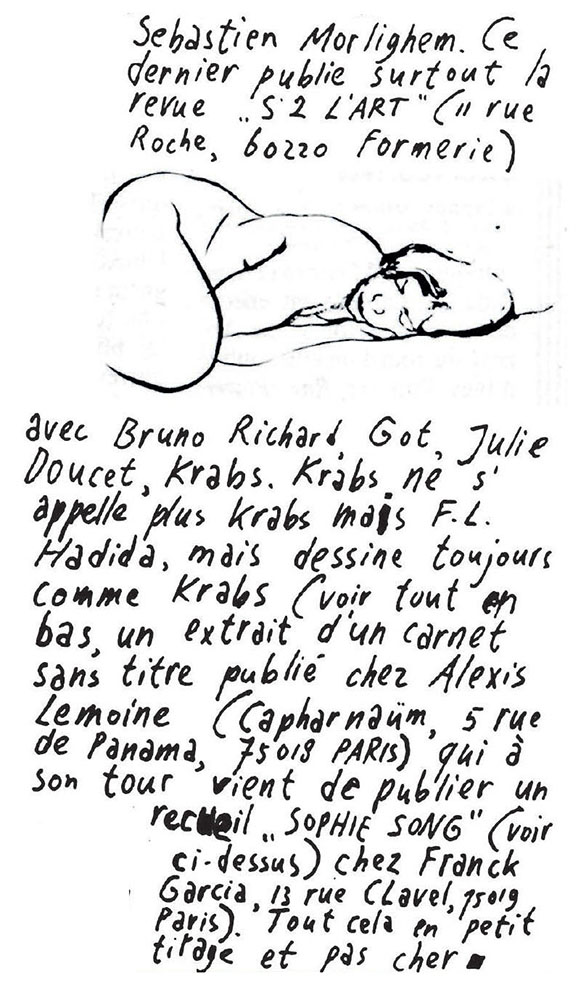 Sebastien Morlighem. Ce
dernier publie surtout la
revue „S 2 L'ART" (11 rue
Roche, 60220 Formerie)
avec Bruno Richard, Got, Julie
Doucet, Krabs. Krabs ne s'
appelle plus Krabs mais F.L.
Hadida, mais dessine toujours
comme Krabs (voir tout en
bas, un extrait d'un carnet
sans titre publié chez Alexis
Lemoine (Capharnaüm, 5 rue
de Panama, 75018 PARIS) qui à
son tour vient de publier un
recueil „SOPHIE SONG" (voir
ci-dessus) chez Franck
Garcia, 13 rue CLavel, 75019
Paris). Tout cela en petit
tirage et pas cher